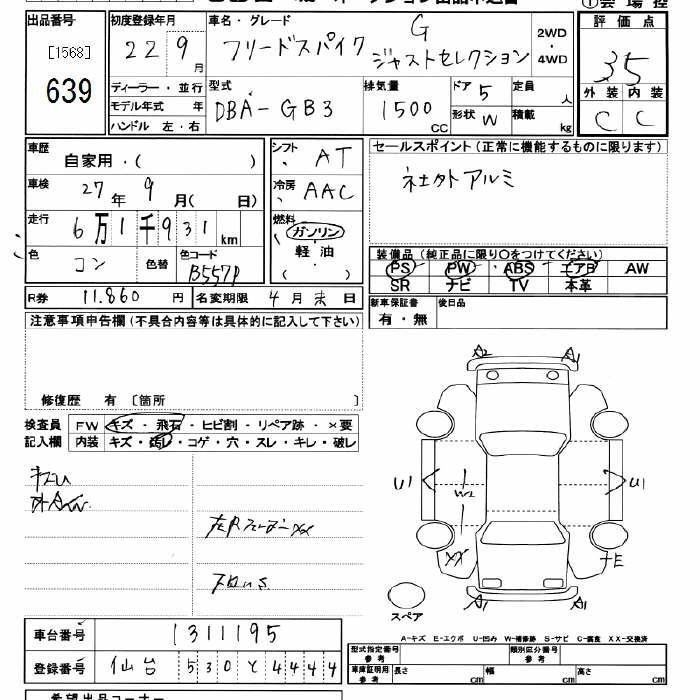 出品番号 初度登録年月 車名・グレード ①会場控
[1568] 22 9月 フリードスパイク G ジャストセレクション 2WD・4WD 評価点
639 35
ディーラー・並行 型式 排気量 ドア 5 定員 人 外装 内装
モデル年式 年 DBA-GB3 1500 CC 形状 W 積載 kg C C
ハンドル 左・右
車歴 自家用・( ) シフト AT セールスポイント(正常に機能するものに限ります)
車検 27年 9月( 日) 冷房 AAC アルミ
走行 6万1千931km 燃料 ガソリン
軽油
( )
色 コン 色替 色コード B557P 装備品(純正品に限り○をつけてください)
PS PW ABS エアB AW
SR ナビ TV 本革
R券 11.860円 名変期限 4月末日 新車保証書 後日品
有・無
注意事項申告欄(不具合内容等は具体的に記入して下さい)
修復歴 有 [箇所 ]
検査員 FW キズ・飛石・ヒビ割・リペア跡・×要
記入欄 内装 キズ・汚レ・コゲ・穴・スレ・キレ・破レ
A2 A1
U1 W2 U1
XX
A1 A1
スペア
A-キズ E-エクボ U-凹み W-補修跡 S-サビ C-腐食 XX-交換済
車台番号 1311195
登録番号 仙台 530 そ 4444
型式指定番号 参考 類別区分番号 参考
車庫証明用 参考 長さ cm 幅 cm 高さ cm
希望出品コーナー